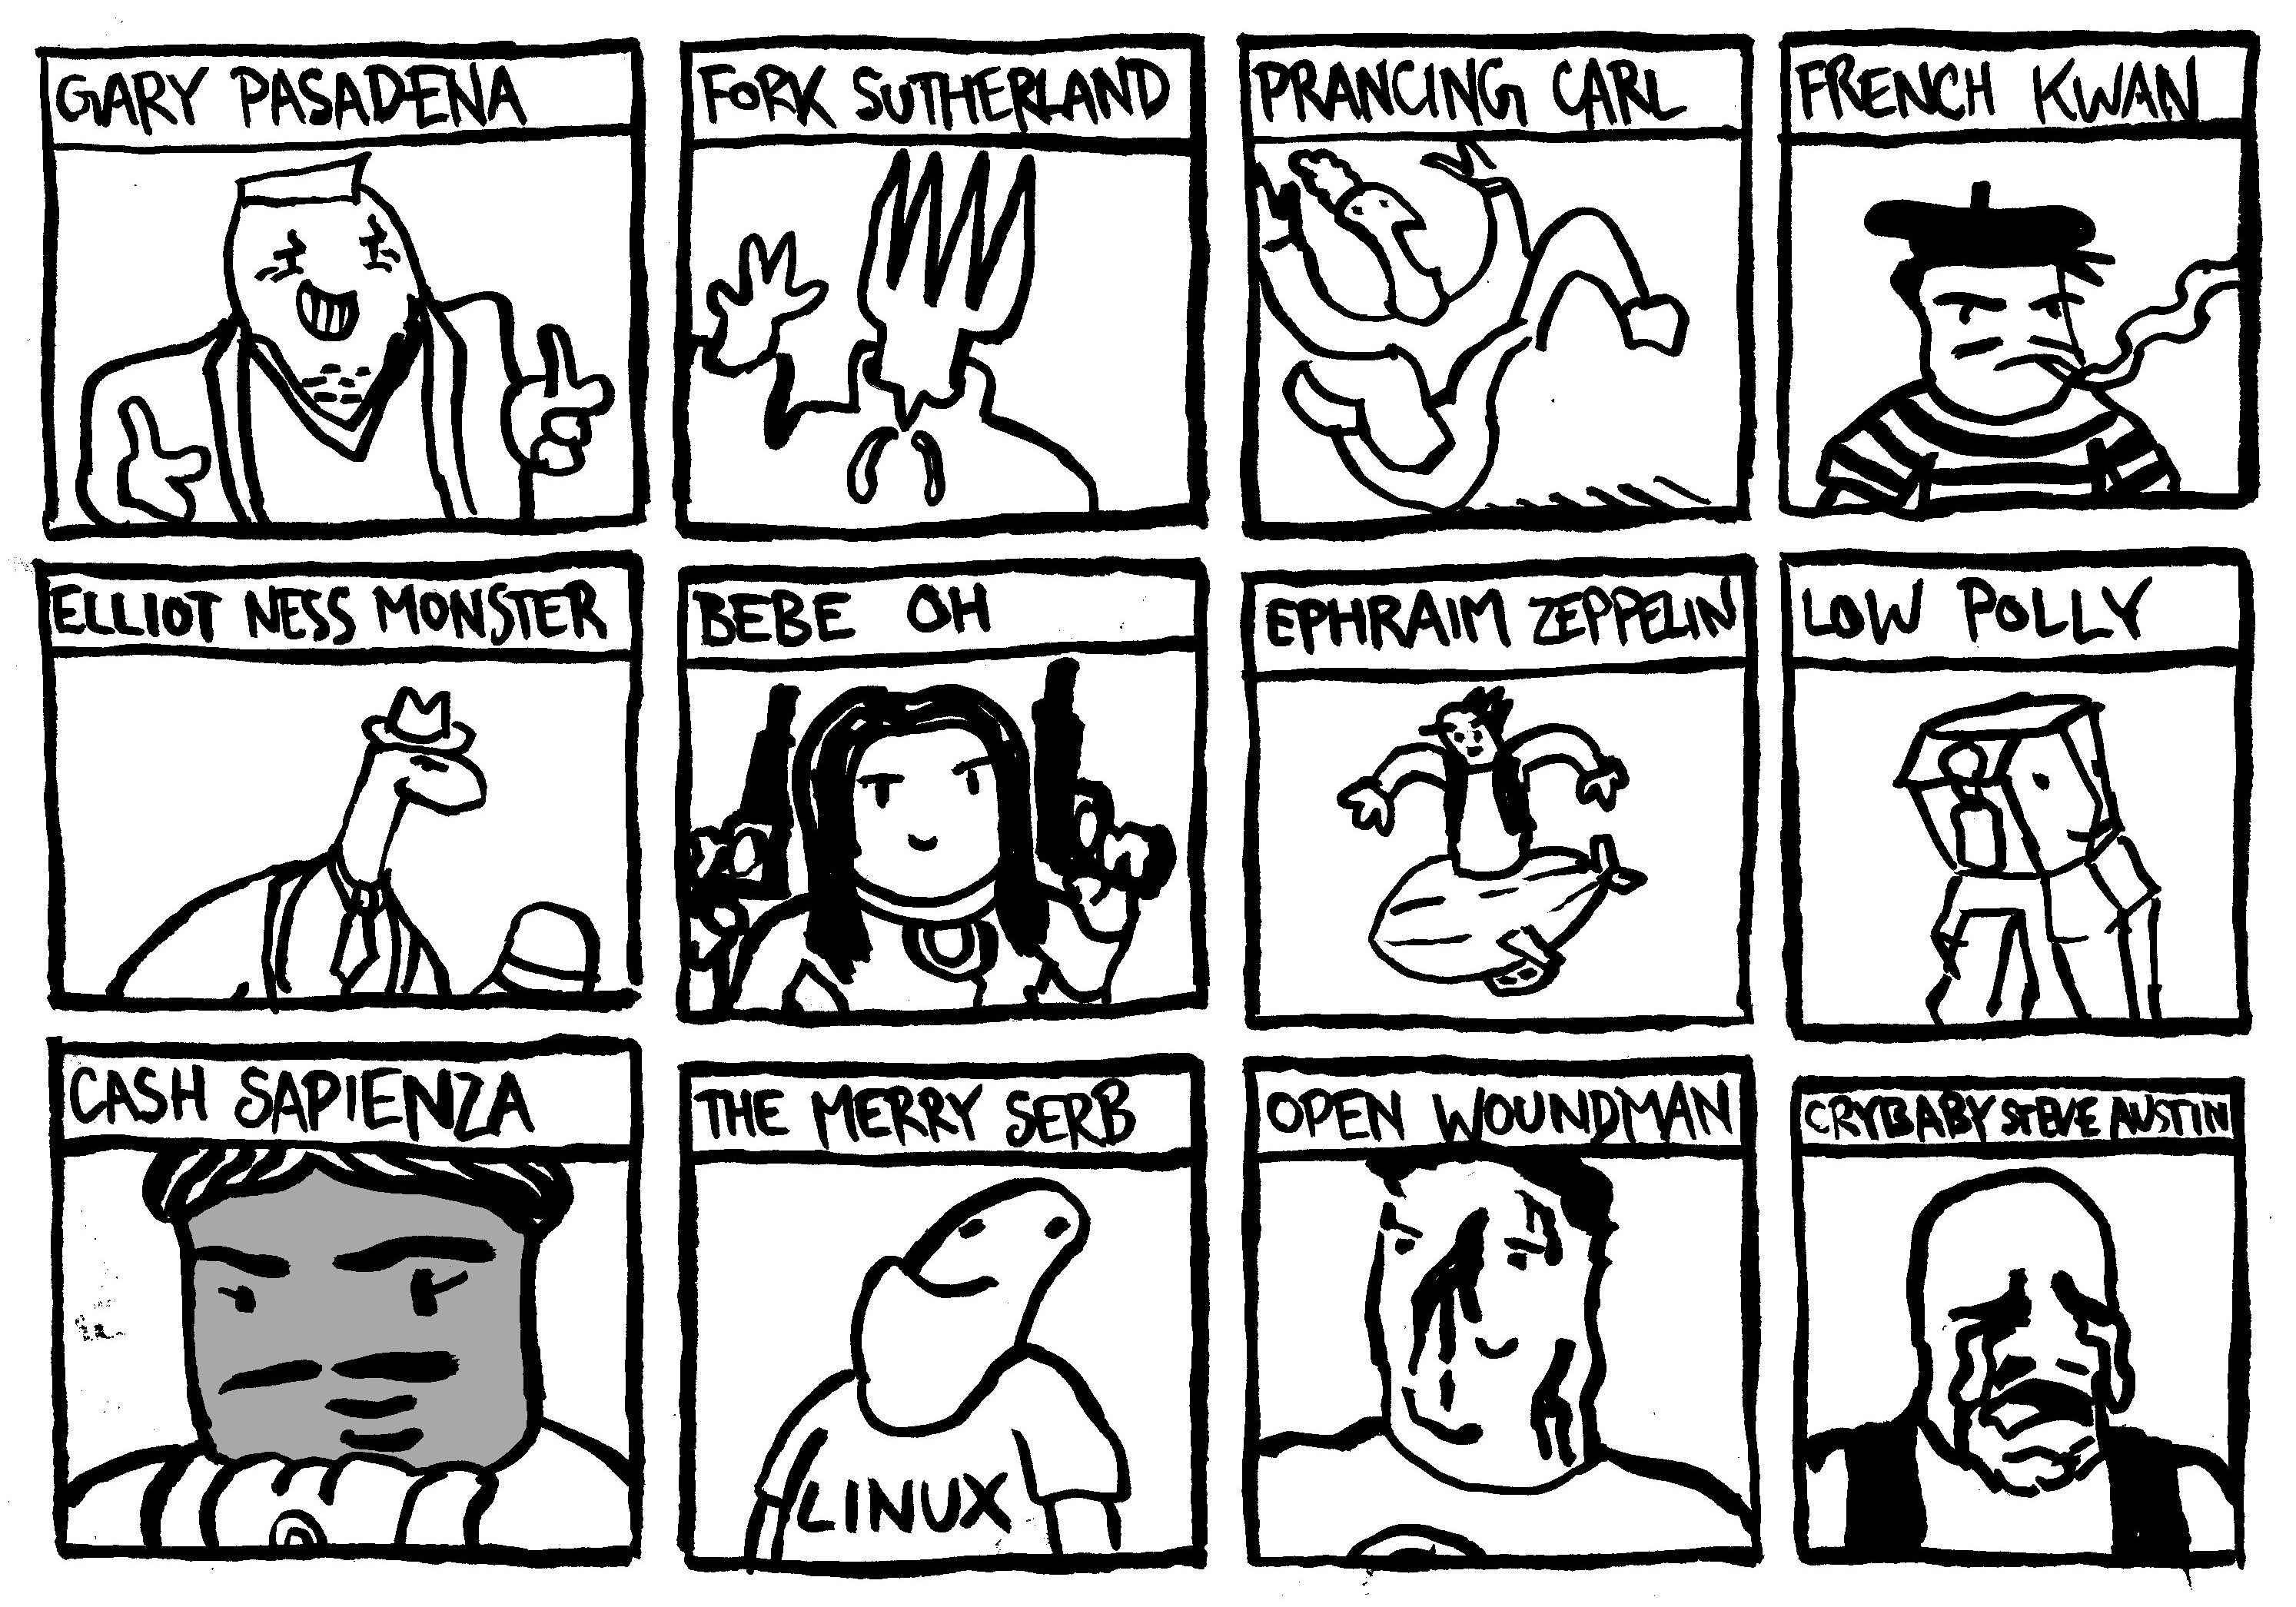 GARY PASADENA
FORK SUTHERLAND
PRANCING CARL
FRENCH KWAN
ELLIOT NESS MONSTER
BEBE OH
EPHRAIM ZEPPELIN
LOW POLLY
CASH SAPIENZA
THE MERRY SERB
LINUX
OPEN WOUNDMAN
CRYBABY STEVE AUSTIN